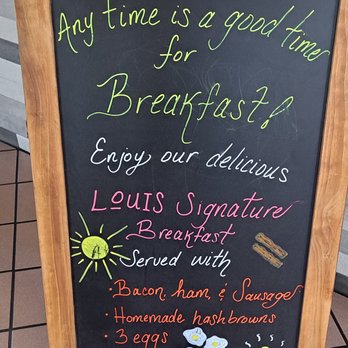 Any time is a good time
for
Breakfast!
Enjoy our delicious
LOUIS Signature
Breakfast
Served with
• Bacon, ham, & Sausage
• Homemade hashbrowns
• 3 eggs